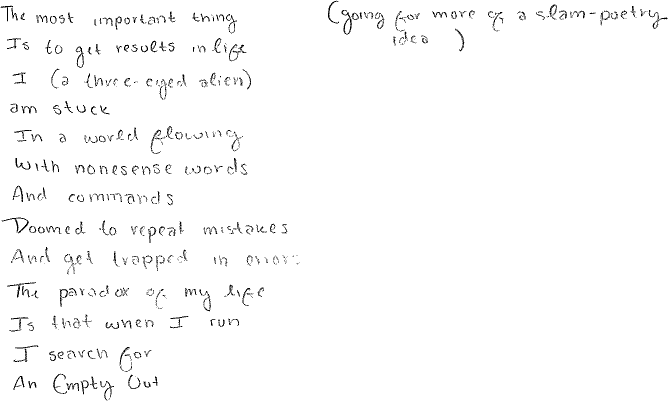 The most important thing
Is to get results in life
I (a three-eyed alien)
am stuck
In a world flowing
With nonesense words
And commands
Doomed to repeat mistakes
And get trapped in errors
The paradox of my life
Is that when I run
I search for
An Empty Out
(going for more of a slam-poetry
idea )